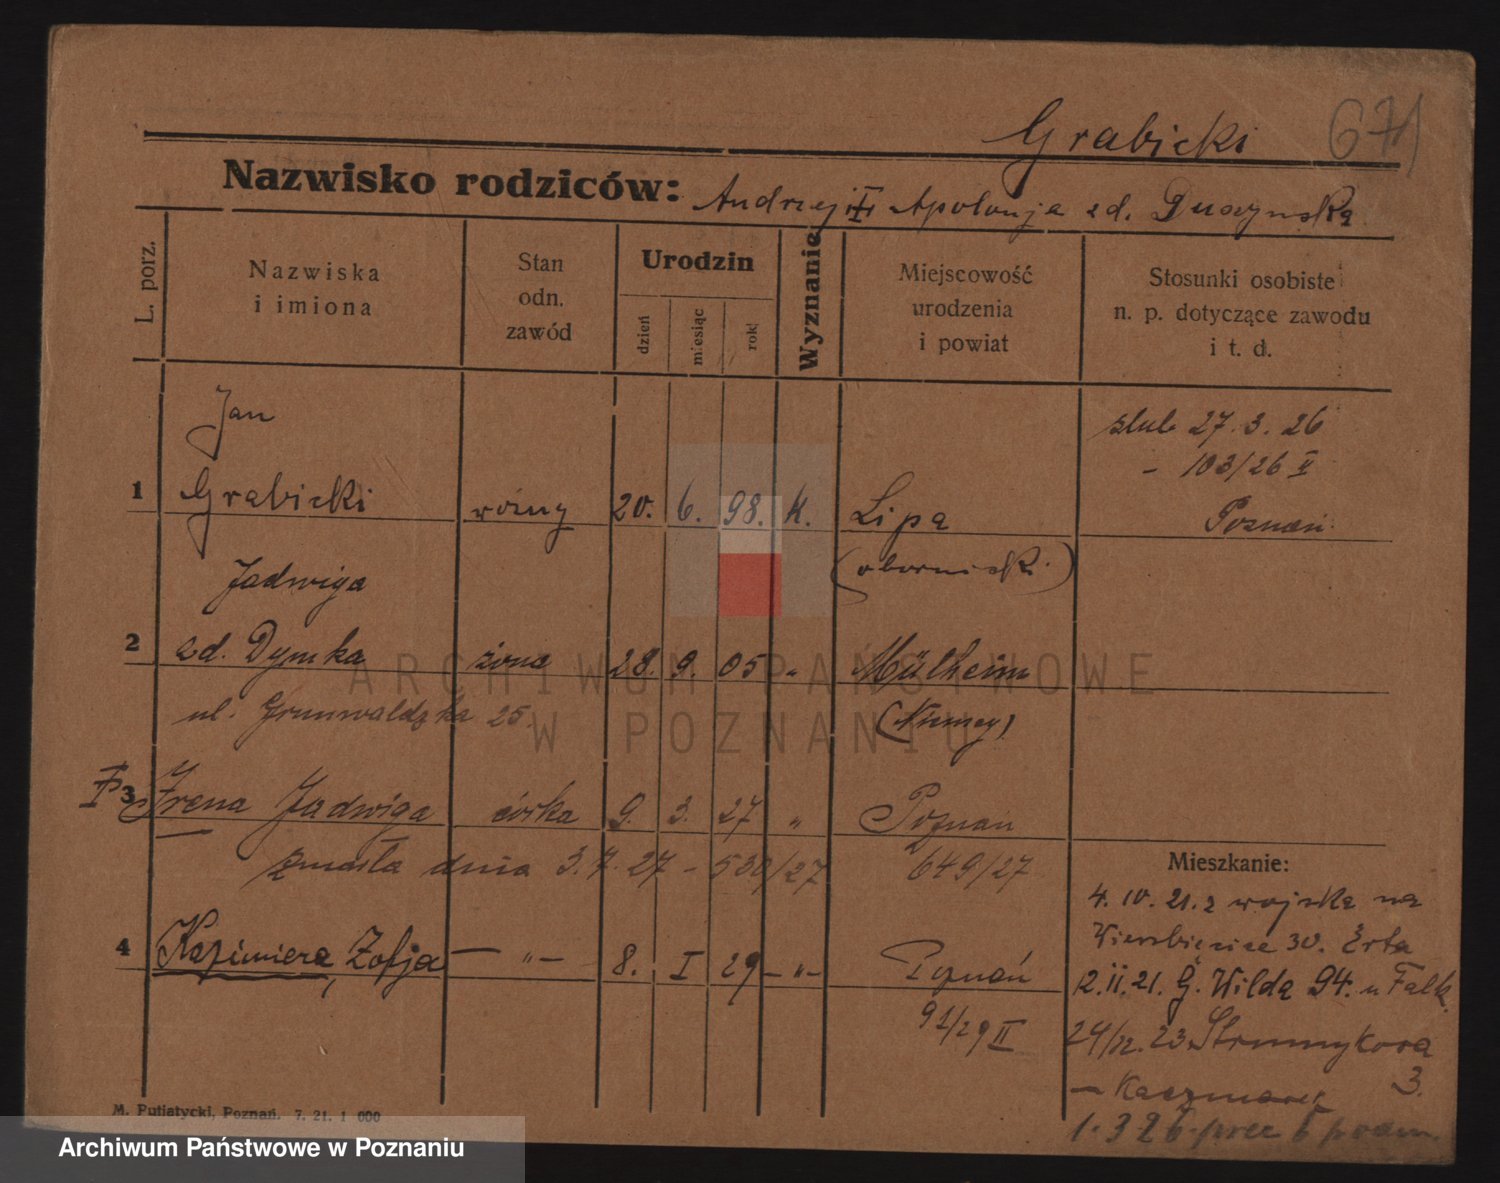 Grabicki 671
Nazwisko rodziców: Andrzej i Apolonja zd. Duszyńska
L. porz.
Nazwiska i imiona
Stan odn. zawód
Urodzin
dzień
miesiąc
rok
Wyznanie
Miejscowość urodzenia i powiat
Stosunki osobiste
n. p. dotyczące zawodu
i t. d.
Jan
ślub 27. 3. 26
- 103/26 II
1 Grabicki woźny 20. 6. 98. K. Lipa Poznań
(obornicki)
Jadwiga
2 zd. Dymka żona 28. 9. 05 " Mülheim
ul. Grunwaldzka 25. (Niemcy)
3 Irena Jadwiga córka 9. 3. 27 " Poznań
zmarła dnia 3. 7. 27 - 530/27 649/27
Mieszkanie:
4. 10. 21. z wojska na
Wierzbięcice 30. Erta
4 Kazimiera, Zofja — " — 8. I 29 — " — Poznań
12. 11. 21. G. Wilda 94. u Falk.
91/29 II
24/12. 23. Strumykowa
3.
— Kaczmarek
1. 3 26
M. Putiatycki, Poznań. 7. 21. 1 000
ARCHIWUM PAŃSTWOWE
W POZNANIU
Archiwum Państwowe w Poznaniu